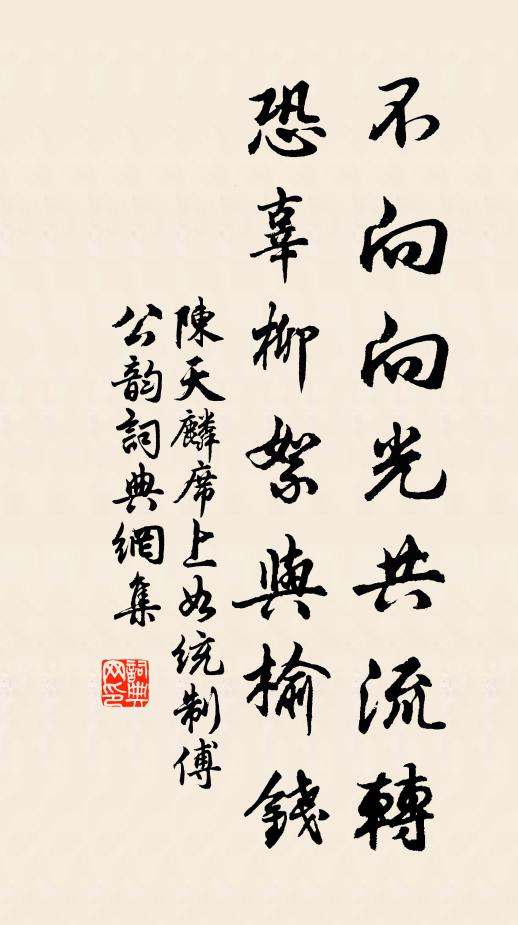 不向向光共流轉
恐辜柳絮與榆錢
陳天麟席上如統制傅
公韵詞典網集
詞典网印